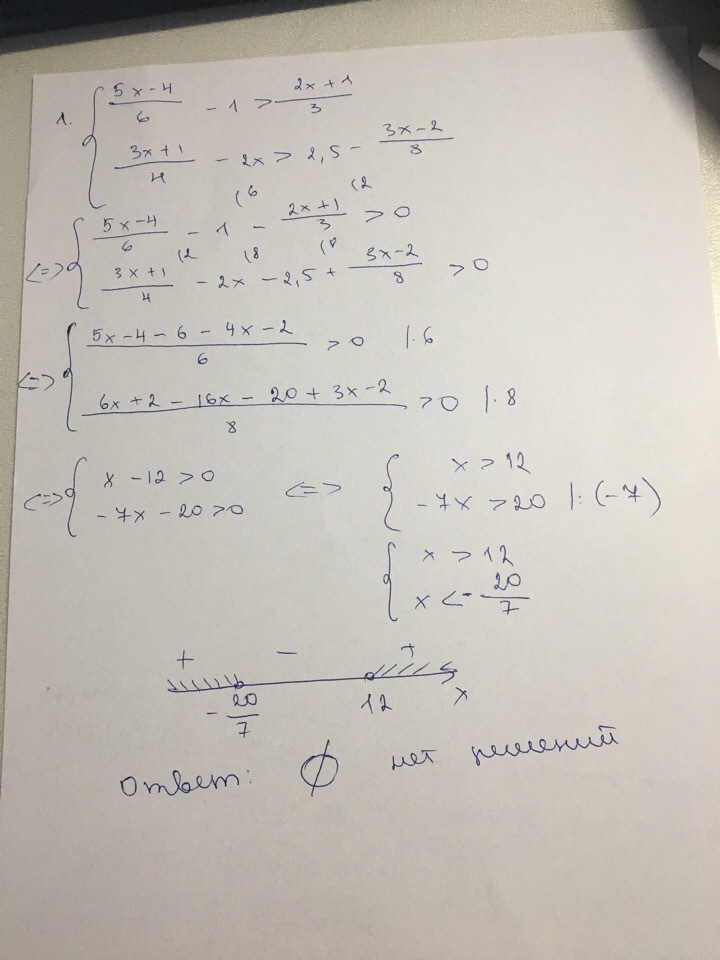 1. { (5x-4)/6 - 1 > (2x+1)/3
(3x+1)/4 - 2x > 2,5 - (3x-2)/8
(6 (2
<=> { (5x-4)/6 - 1 - (2x+1)/3 > 0
(2 (8 (8
(3x+1)/4 - 2x - 2,5 + (3x-2)/8 > 0
<=> { (5x-4-6-4x-2)/6 > 0 |·6
(6x+2-16x-20+3x-2)/8 > 0 |·8
<=> { x - 12 > 0 <=> { x > 12
-7x - 20 > 0 -7x > 20 |:(-7)
{ x > 12
x < -20/7
+ - +
-20/7 12 x
Ответ: ∅ нет решений